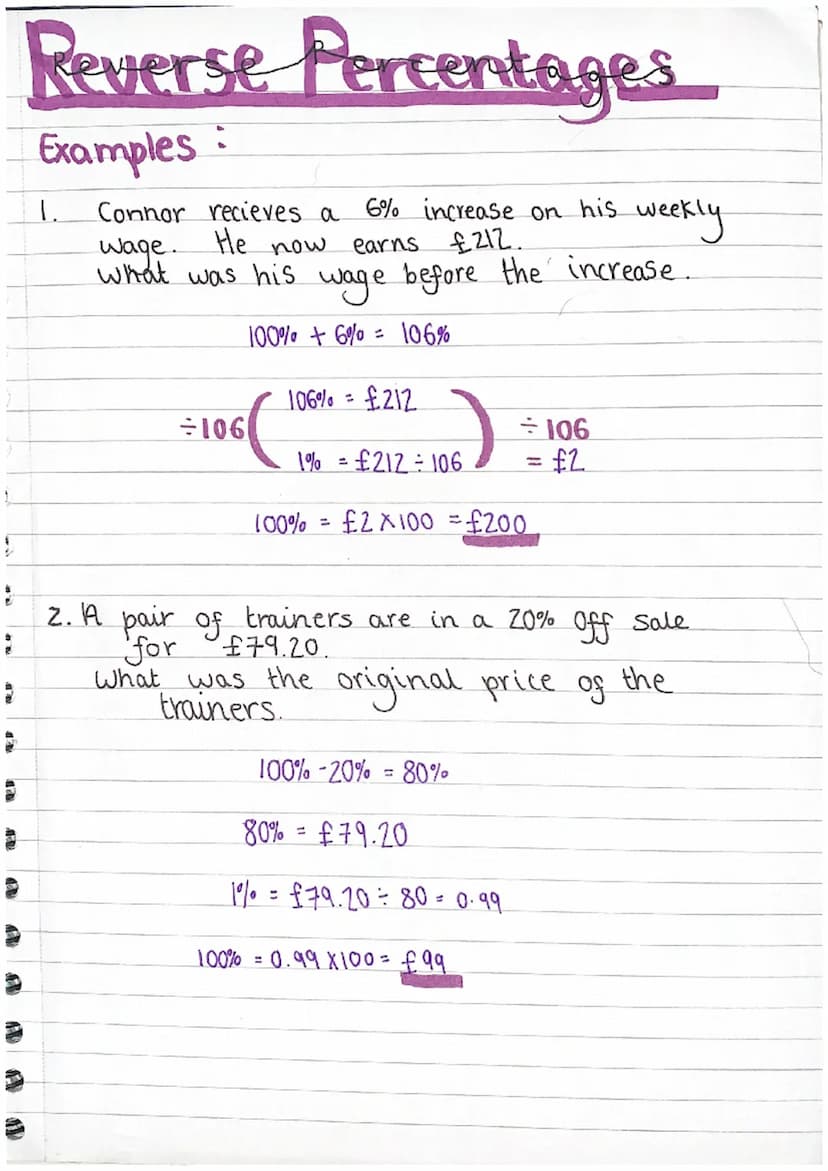 Reverse Percentages
Examples :
1. Connor recieves a 6% increase on his weekly
wage. He now earns £212.
what was his wage before the increase.
100% + 6% = 106%
106% = £212
÷106 ÷ 106
1% = £212 ÷ 106 = £2
100% = £2 X100 = £200
2. A pair of trainers are in a 20% Off Sale
for £79.20.
What was the original price og the
trainers.
100% - 20% = 80%
80% = £79.20
1% = £79.20 ÷ 80 = 0.99
100% = 0.99 X100 = £99